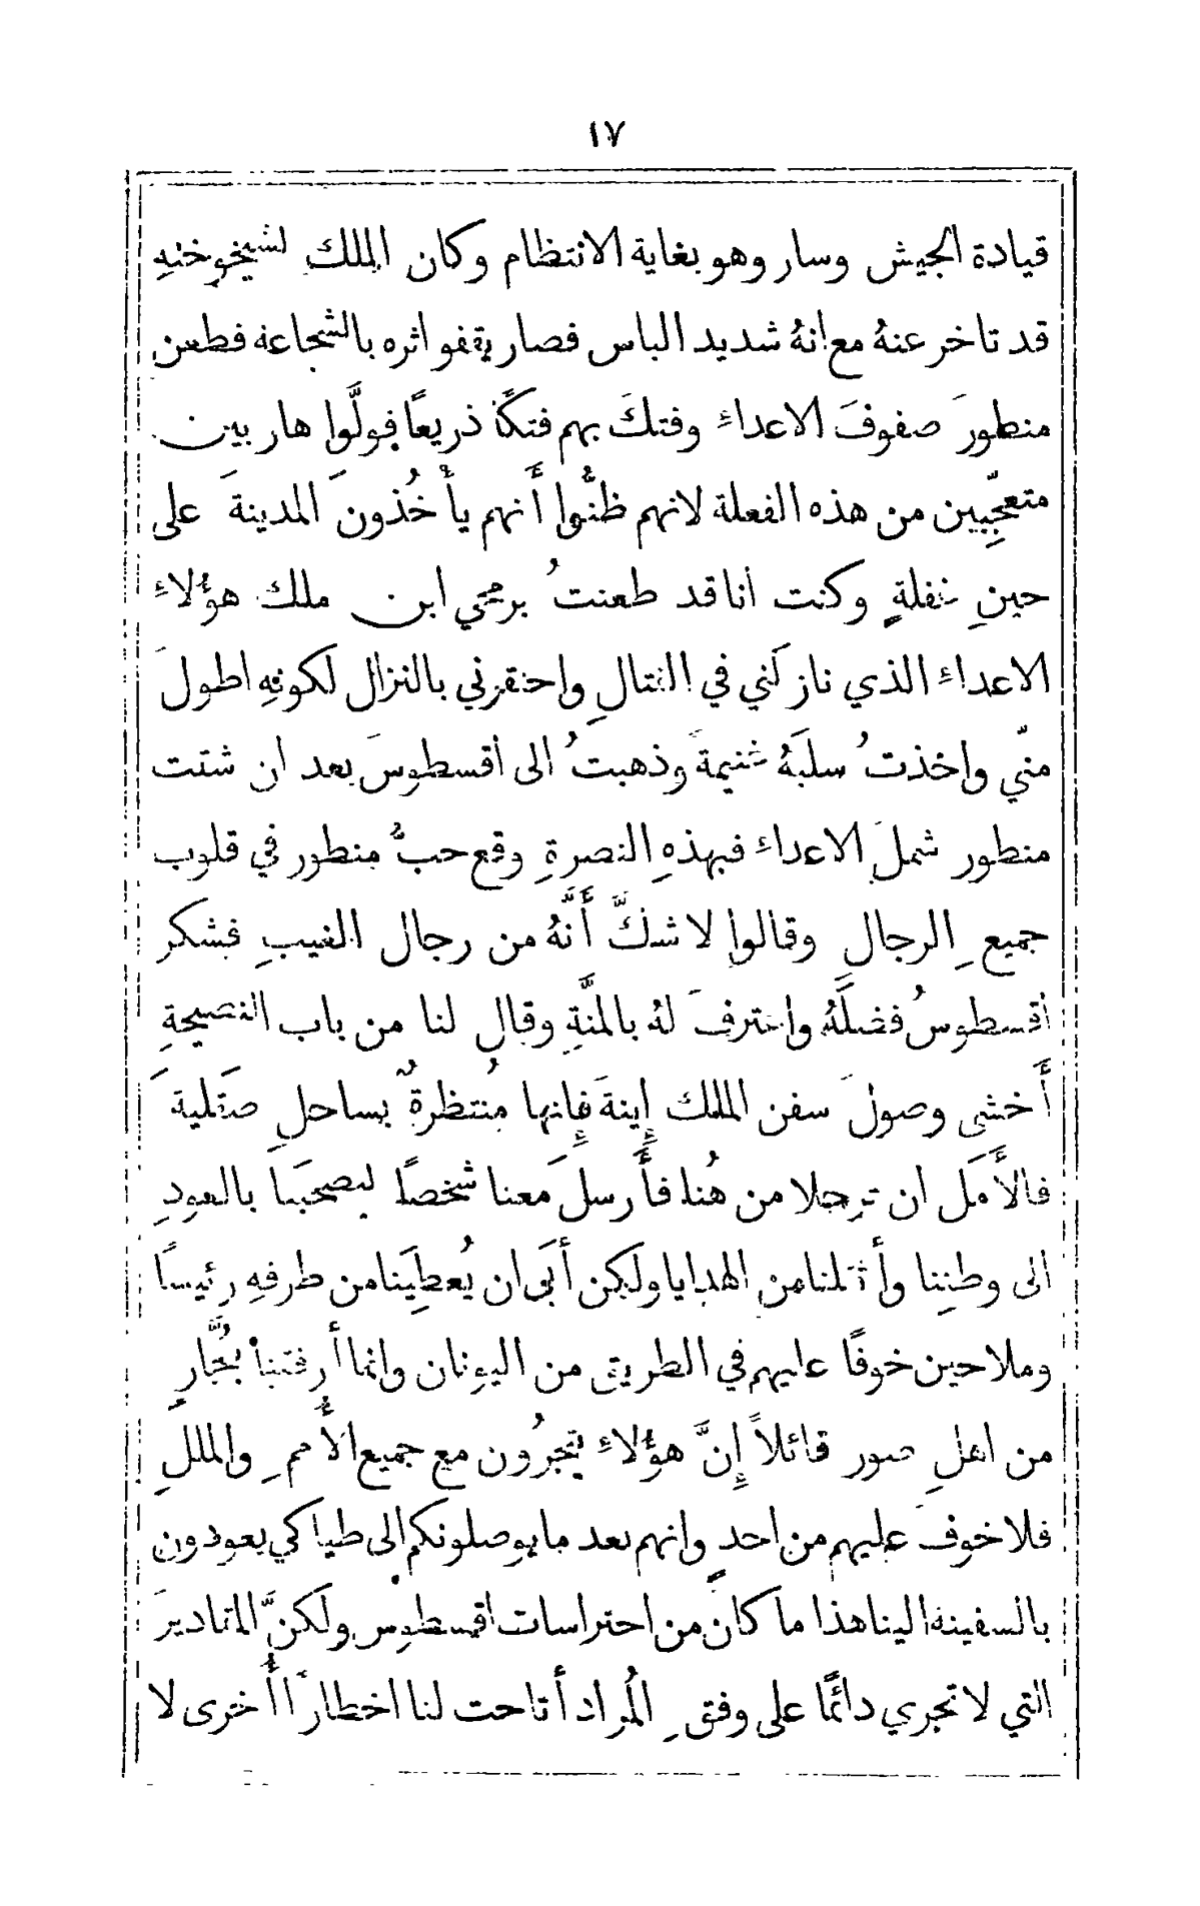 ١٧
قيادة الجيش وسار وهو بغاية الانتظام وكان الملك لشيخوختهِ
قد تاخر عنهُ مع انهُ شديد الباس فصار يقفو اثره بالشجاعة فطعن
منطورَ صفوفَ الاعداءِ وفتكَ بهم فتكًا ذريعًا فولَّوا هاربين
متعجِّبين من هذه الفعلة لانهم ظنُّوا أَنهم يأْخُذونَ المدينةَ على
حينِ غفلةٍ وكنت انا قد طعنتُ برمحي ابن ملك هؤلاءِ
الاعداءِ الذي نازلَني في القتالِ واحتقرني بالنزال لكونهِ اطولَ
منّي واخذتُ سلبَهُ غنيمةً وذهبتُ الى اقسطوسَ بعد ان شتت
منطور شملَ الاعداءِ فبهذهِ النصرةِ وقع حبُّ منطور في قلوب
جميعِ الرجالِ وقالوا لا شكَّ أَنَّهُ من رجال الغيبِ فشكر
اقسطوسُ فضلَهُ واعترفَ لهُ بالمنَّةِ وقال لنا من باب النصيحةِ
أَخشى وصولَ سفن الملك إِينةَ فإِنها مُنتظرةٌ بساحلِ صقليةَ
فالأَمَل ان ترحلا من هُنا فأَرسلَ معنا شخصًا ليصحَبَنا بالعودِ
الى وطنِنا وأَثقلنا من الهدايا ولكن أَبَى ان يُعطِيَنا من طرفهِ رئيسًا
وملاحين خوفًا عليهم في الطريق من اليونان وانما أَرفقنا بتُجَّارٍ
من اهلِ صور قائلاً إِنَّ هؤلاءِ يتجرُون مع جميع الأُممِ والمللِ
فلا خوفَ عليهم من احدٍ وانهم بعد ما يوصلونكم الى طياكي يعودون
بالسفينة الينا هذا ما كان من احتراسات اقسطوس ولكنَّ المقاديرَ
التي لا تجري دائمًا على وفقِ المُراد أَتاحت لنا اخطارًا أُخرى لا